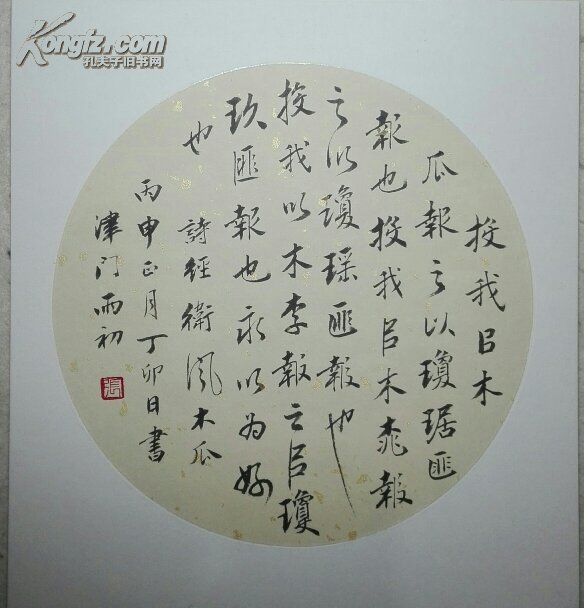 Kongfz.com
孔夫子旧书网
投我㠯木
瓜報之以瓊琚匪
報也投我㠯木桃報
之以瓊瑶匪報也
投我以木李報之㠯瓊
玖匪報也永以为好
也
詩經衛風木瓜
丙申正月丁卯日書
津门雨初